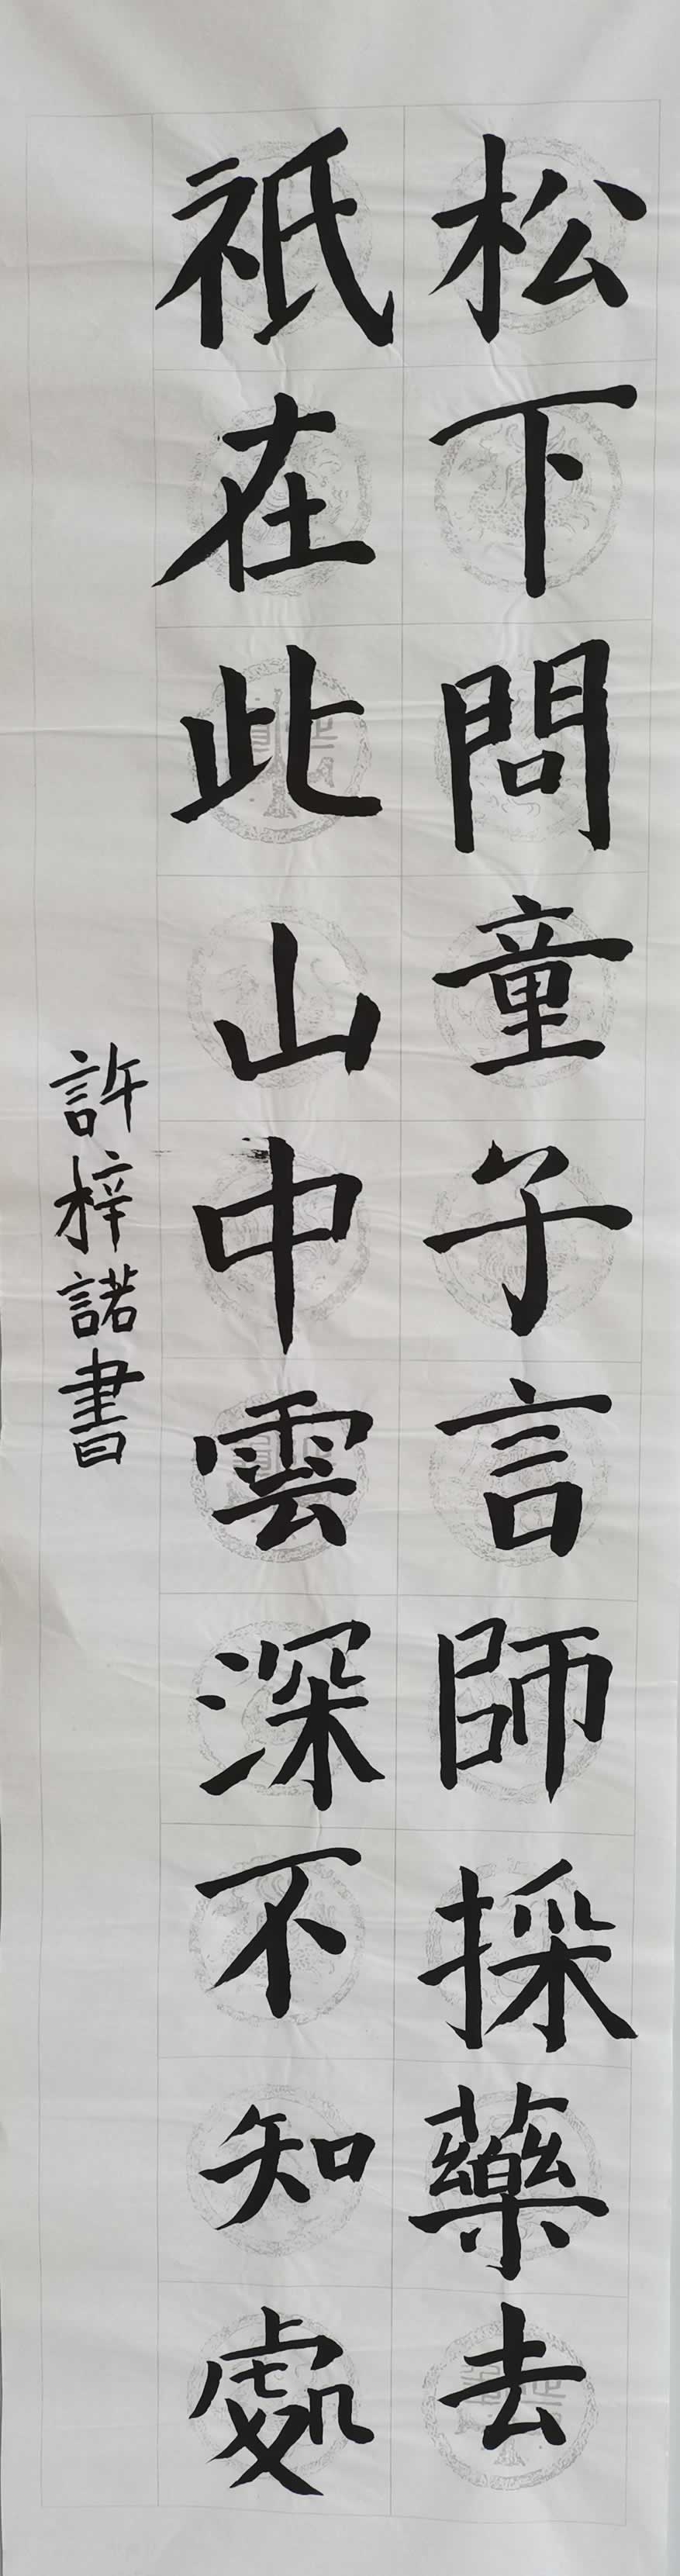 松下問童子言師採藥去
祇在此山中雲深不知處
許梓諾書